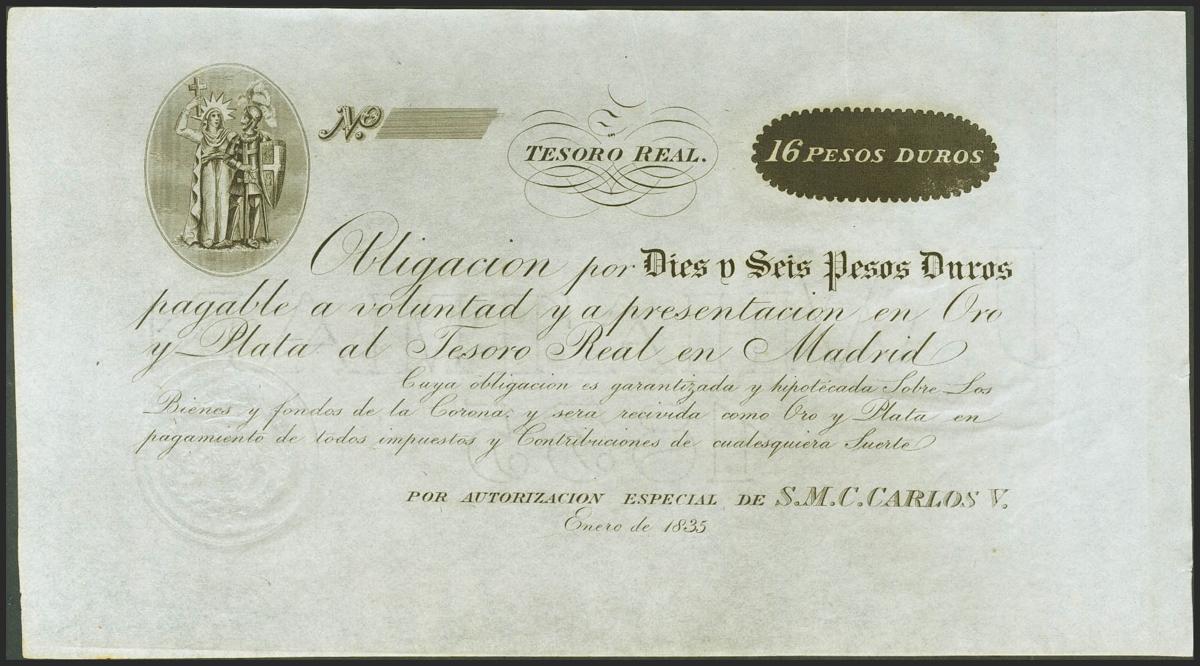 Nº
TESORO REAL.
16 PESOS DUROS
Obligacion por Dies y Seis Pesos Duros
pagable a voluntad y a presentacion en Oro
y Plata al Tesoro Real en Madrid
Cuya obligacion es garantizada y hipotécada Sobre Los
Bienes y fondos de la Corona, y sera recivida como Oro y Plata en
pagamiento de todos impuestos y Contribuciones de cualesquiera Suerte
POR AUTORIZACION ESPECIAL DE S.M.C.CARLOS V.
Enero de 1835